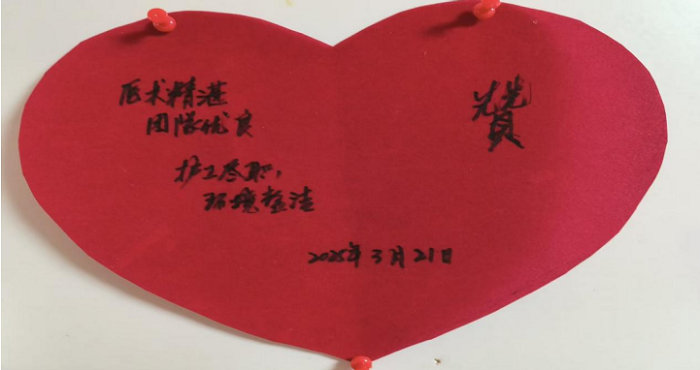 医术精湛
团队优良
护工尽职，
环境整洁
赞
2025年3月21日